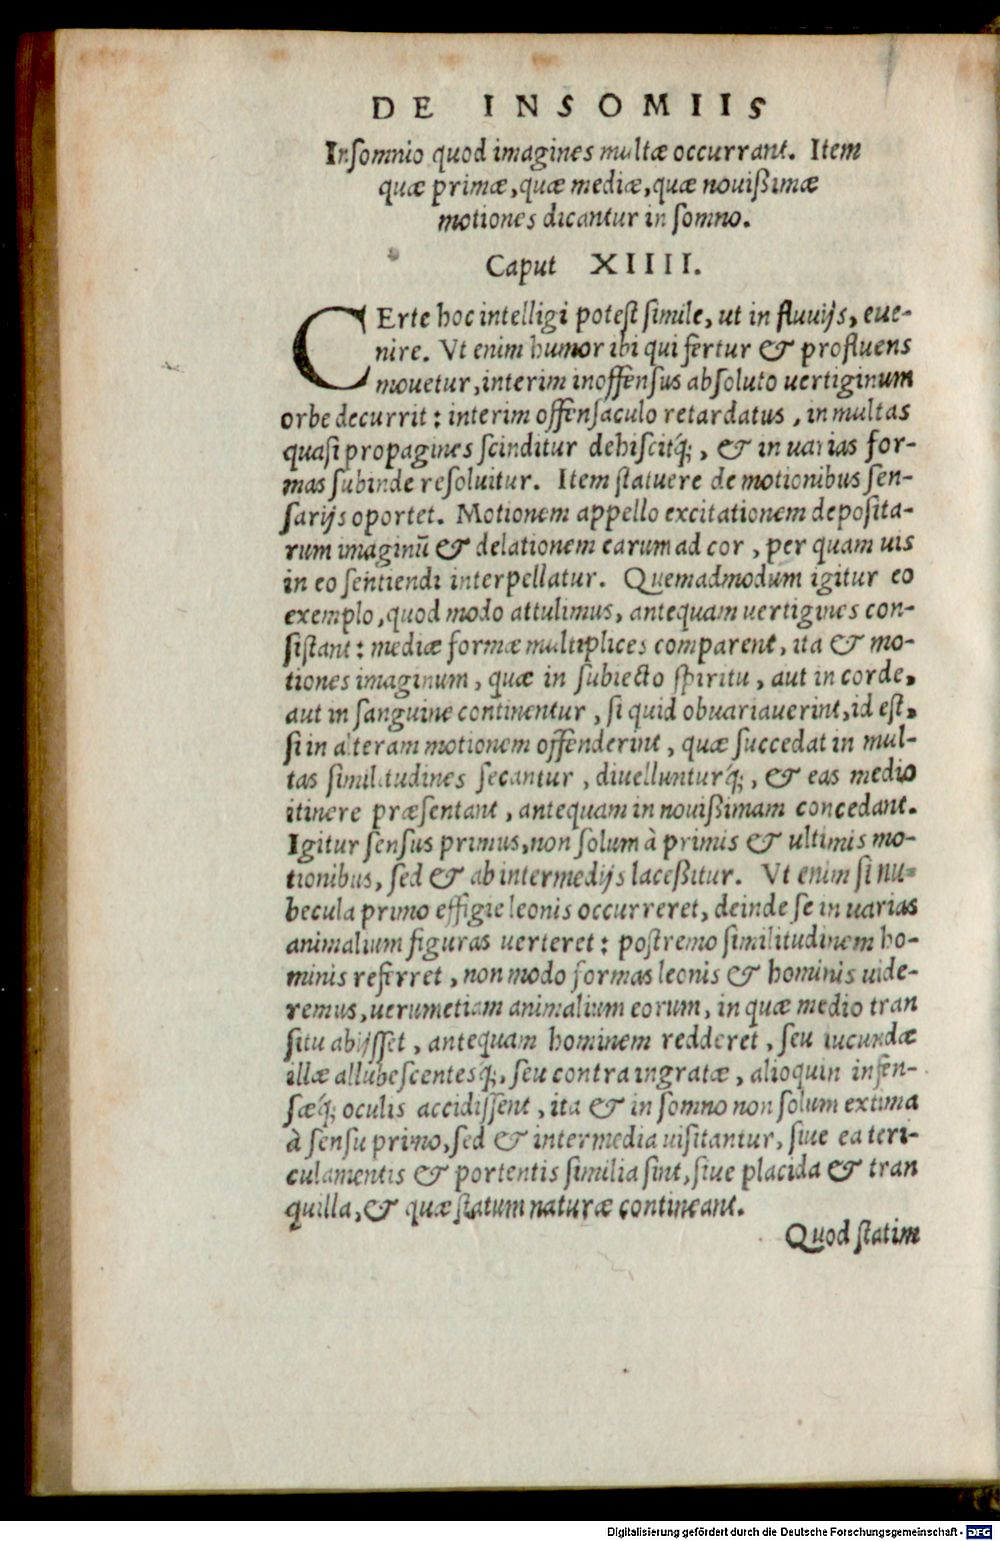 DE INSOMIIS
Inſomnio quod imagines multæ occurrant. Item
quæ primæ, quæ mediæ, quæ nouißimæ
motiones dicantur in ſomno.
Caput XIIII.
CErte hoc intelligi poteſt ſimile, ut in fluuijs, eue-
nire. Vt enim humor ibi qui fertur & profluens
mouetur, interim inoffenſus abſoluto uertiginum
orbe decurrit: interim offenſaculo retardatus, in multas
quaſi propagines ſcinditur dehiſcitq́;, & in uarias for-
mas ſubinde reſoluitur. Item ſtatuere de motionibus ſen-
ſarijs oportet. Motionem appello excitationem depoſita-
rum imaginū & delationem earum ad cor, per quam uis
in eo ſentiendi interpellatur. Quemadmodum igitur eo
exemplo, quod modo attulimus, antequam uertigines con-
ſiſtant: mediæ formæ multiplices comparent, ita & mo-
tiones imaginum, quæ in ſubiecto ſpiritu, aut in corde,
aut in ſanguine continentur, ſi quid obuariauerint, id eſt,
ſi in alteram motionem offenderint, quæ ſuccedat in mul-
tas ſimilitudines ſecantur, diuellunturq́;, & eas medio
itinere præſentant, antequam in nouißimam concedant.
Igitur ſenſus primus, non ſolum à primis & ultimis mo-
tionibus, ſed & ab intermedijs laceßitur. Vt enim ſi nu-
becula primo effigie leonis occurreret, deinde ſe in uarias
animalium figuras uerteret: poſtremo ſimilitudinem ho-
minis referret, non modo formas leonis & hominis uide-
remus, uerumetiam animalium eorum, in quæ medio tran
ſitu abijſſet, antequam hominem redderet, ſeu iucundæ
illæ allubeſcentesq́;, ſeu contra ingratæ, alioquin infen-
ſæq́; oculis accidiſſent, ita & in ſomno non ſolum extima
à ſenſu primo, ſed & intermedia uiſitantur, ſiue ea teri-
culamentis & portentis ſimilia ſint, ſiue placida & tran
quilla, & quæ ſtatum naturæ contineant.
Quod ſtatim
Digitalisierung gefördert durch die Deutsche Forschungsgemeinschaft - DFG